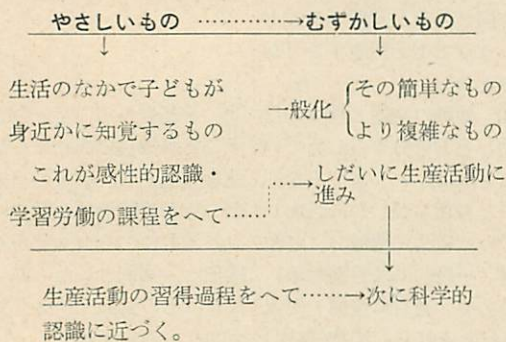 やさしいもの …………→むずかしいもの
↓ ↓
生活のなかで子どもが
身近かに知覚するもの
一般化
その簡単なもの
より複雑なもの
これが感性的認識・
学習労働の課程をへて……
…→しだいに生産活動に
進み
↓
生産活動の習得過程をへて……→次に科学的
認識に近づく。